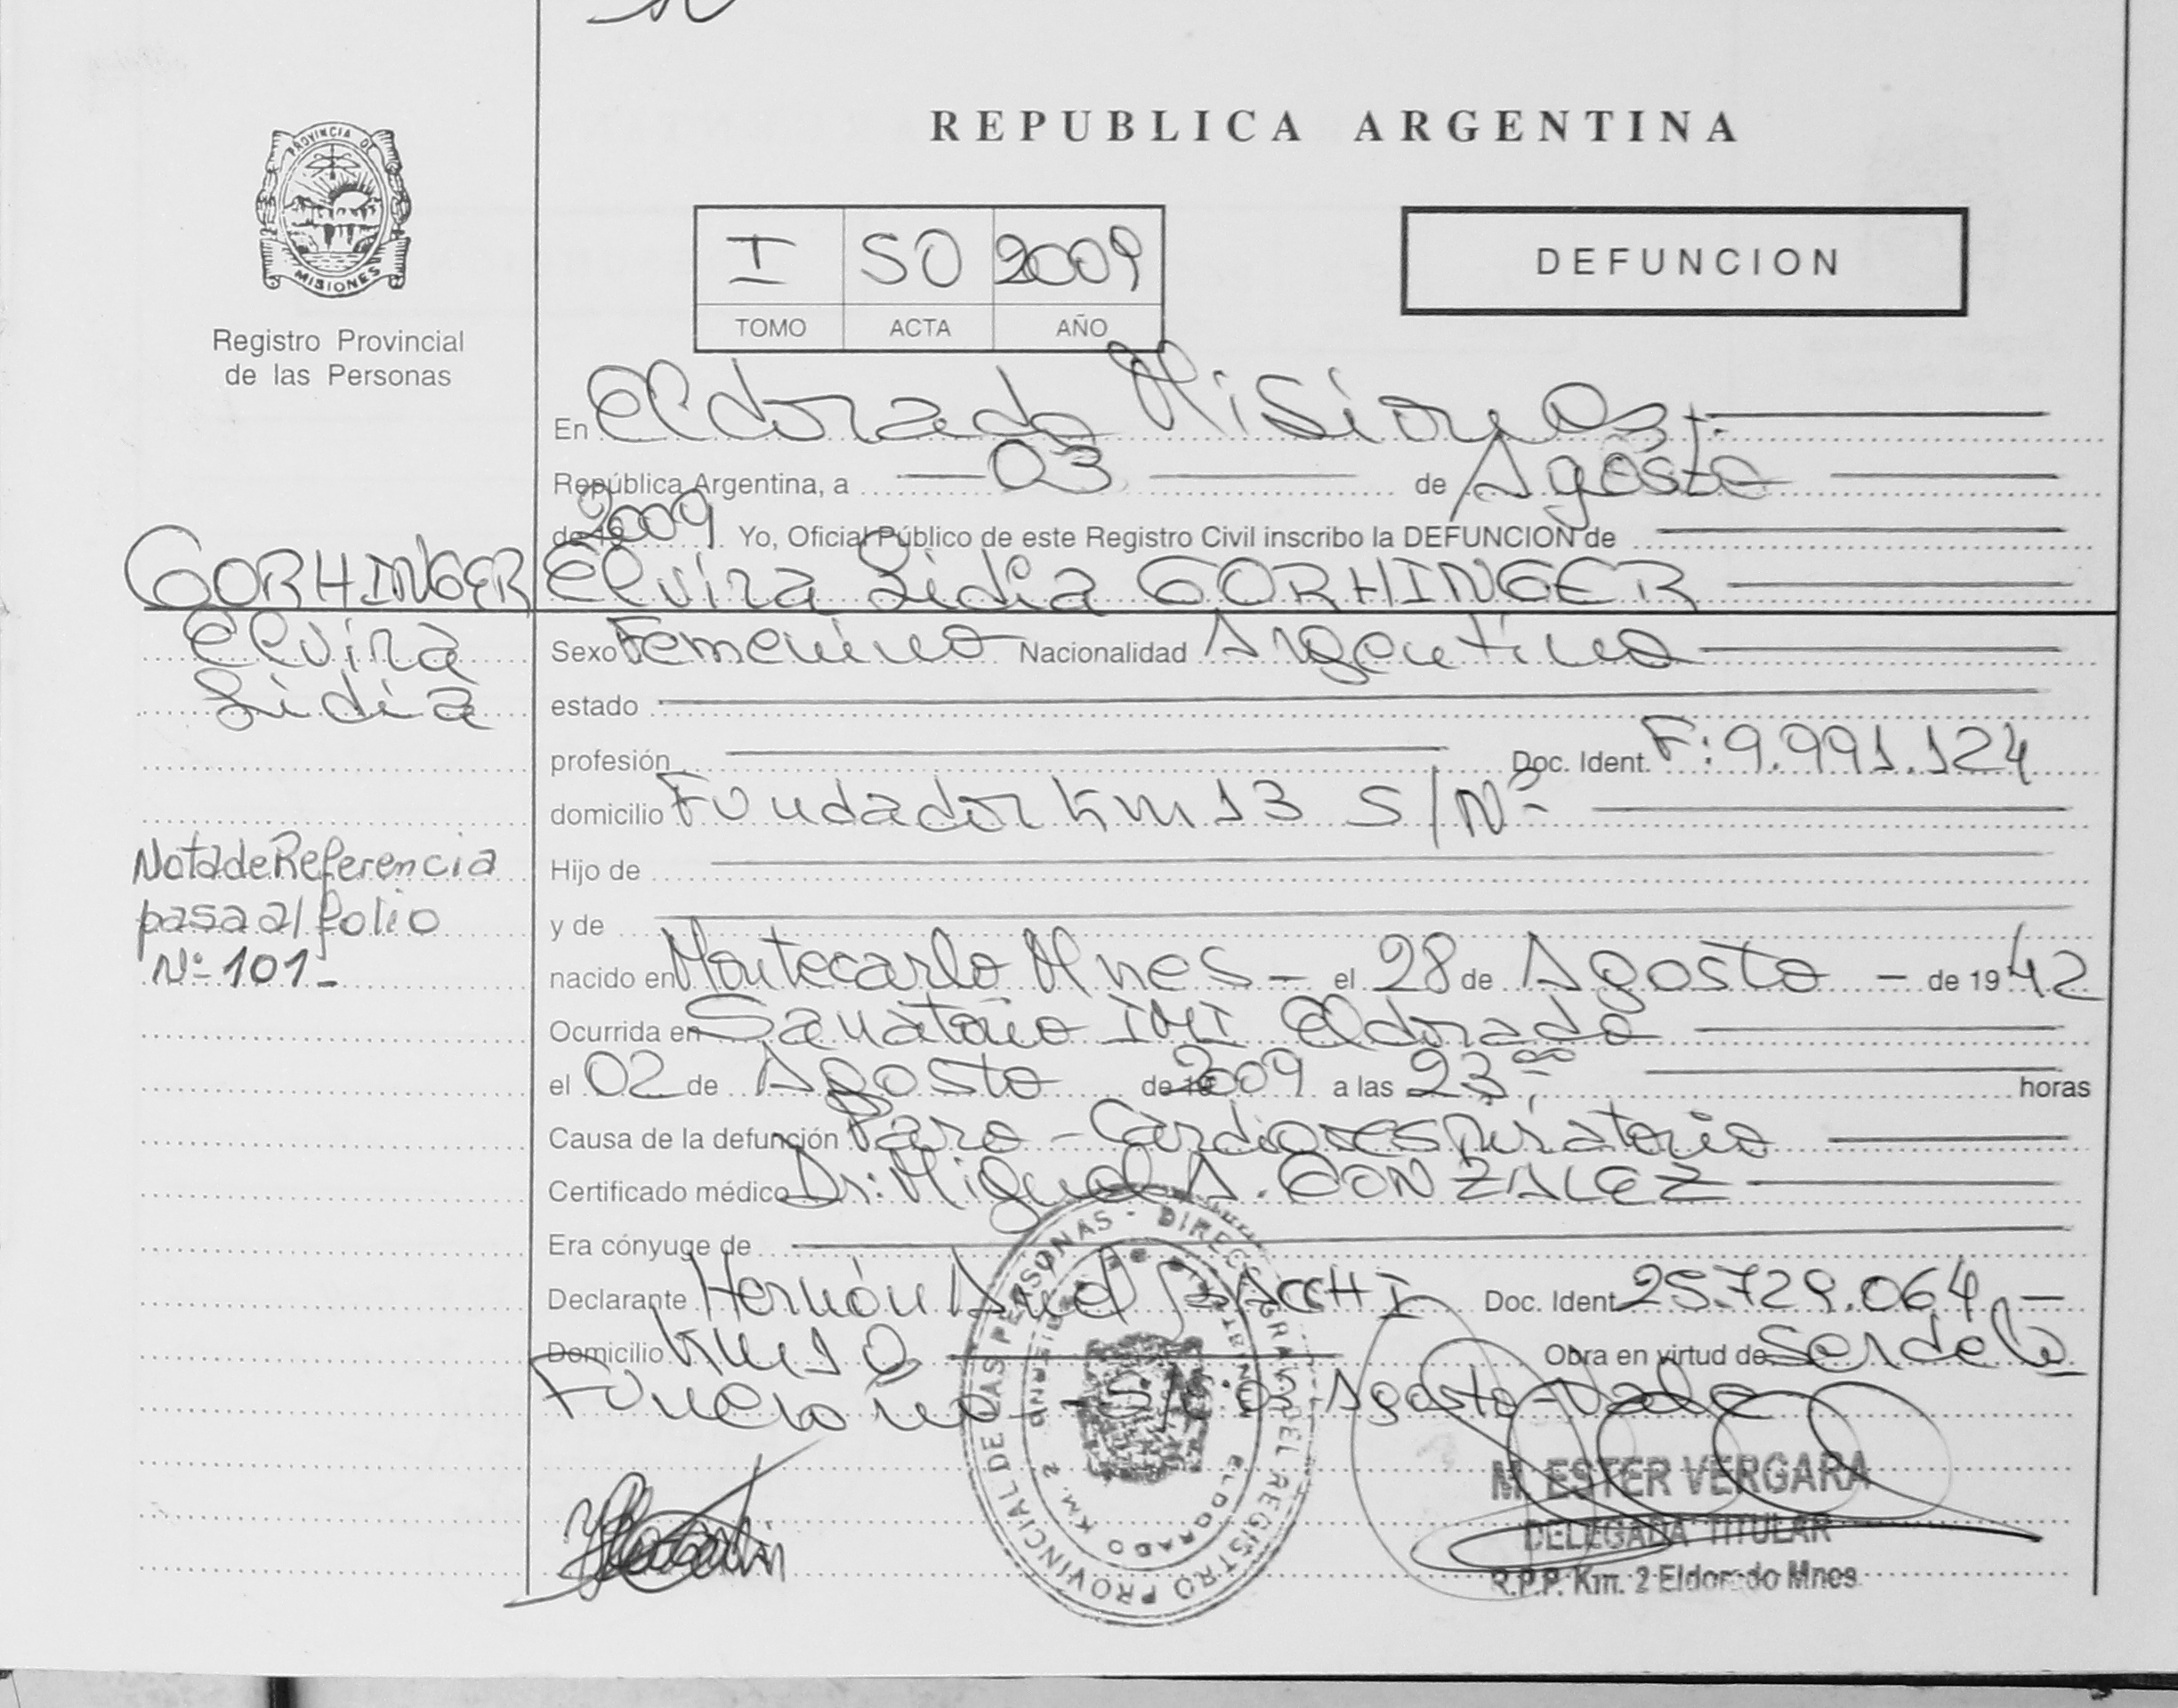 REPUBLICA ARGENTINA
PROVINCIA DE
MISIONES
Registro Provincial
de las Personas
I 50 2009
TOMO ACTA AÑO
DEFUNCION
En Eldorado Misiones.
República Argentina, a 03 de Agosto
de 19 2009 Yo, Oficial Público de este Registro Civil inscribo la DEFUNCION de
Elvira Lidia GORHINGER
GORHINGER
Elvira
Lidia
Nota de Referencia
pasa al folio
Nº 101-
Sexo Femenino Nacionalidad Argentina
estado
profesión Doc. Ident. F: 9.991.124
domicilio Fundador Km 13 S/Nº
Hijo de
y de
nacido en Montecarlo Mnes - el 28 de Agosto - de 19 42
Ocurrida en Sanatorio IMI Eldorado
el 02 de Agosto de 19 2009 a las 23,00 horas
Causa de la defunción Paro - Cardiorespiratorio
Certificado médico Dr: Miguel A. GONZALEZ
Era cónyuge de
Declarante Hernán Ariel BACCHI Doc. Ident. 25.729.064 -
Domicilio Km 10 Obra en virtud de Ser de la
Funeraria - S/R: 03 Agosto - Vale
DIRECC GRAL DEL REGISTRO PROVINCIAL DE LAS PERSONAS -
ELDORADO KM. 2
M. ESTER VERGARA
DELEGADA TITULAR
R.P.P. Km. 2 Eldorado Mnes